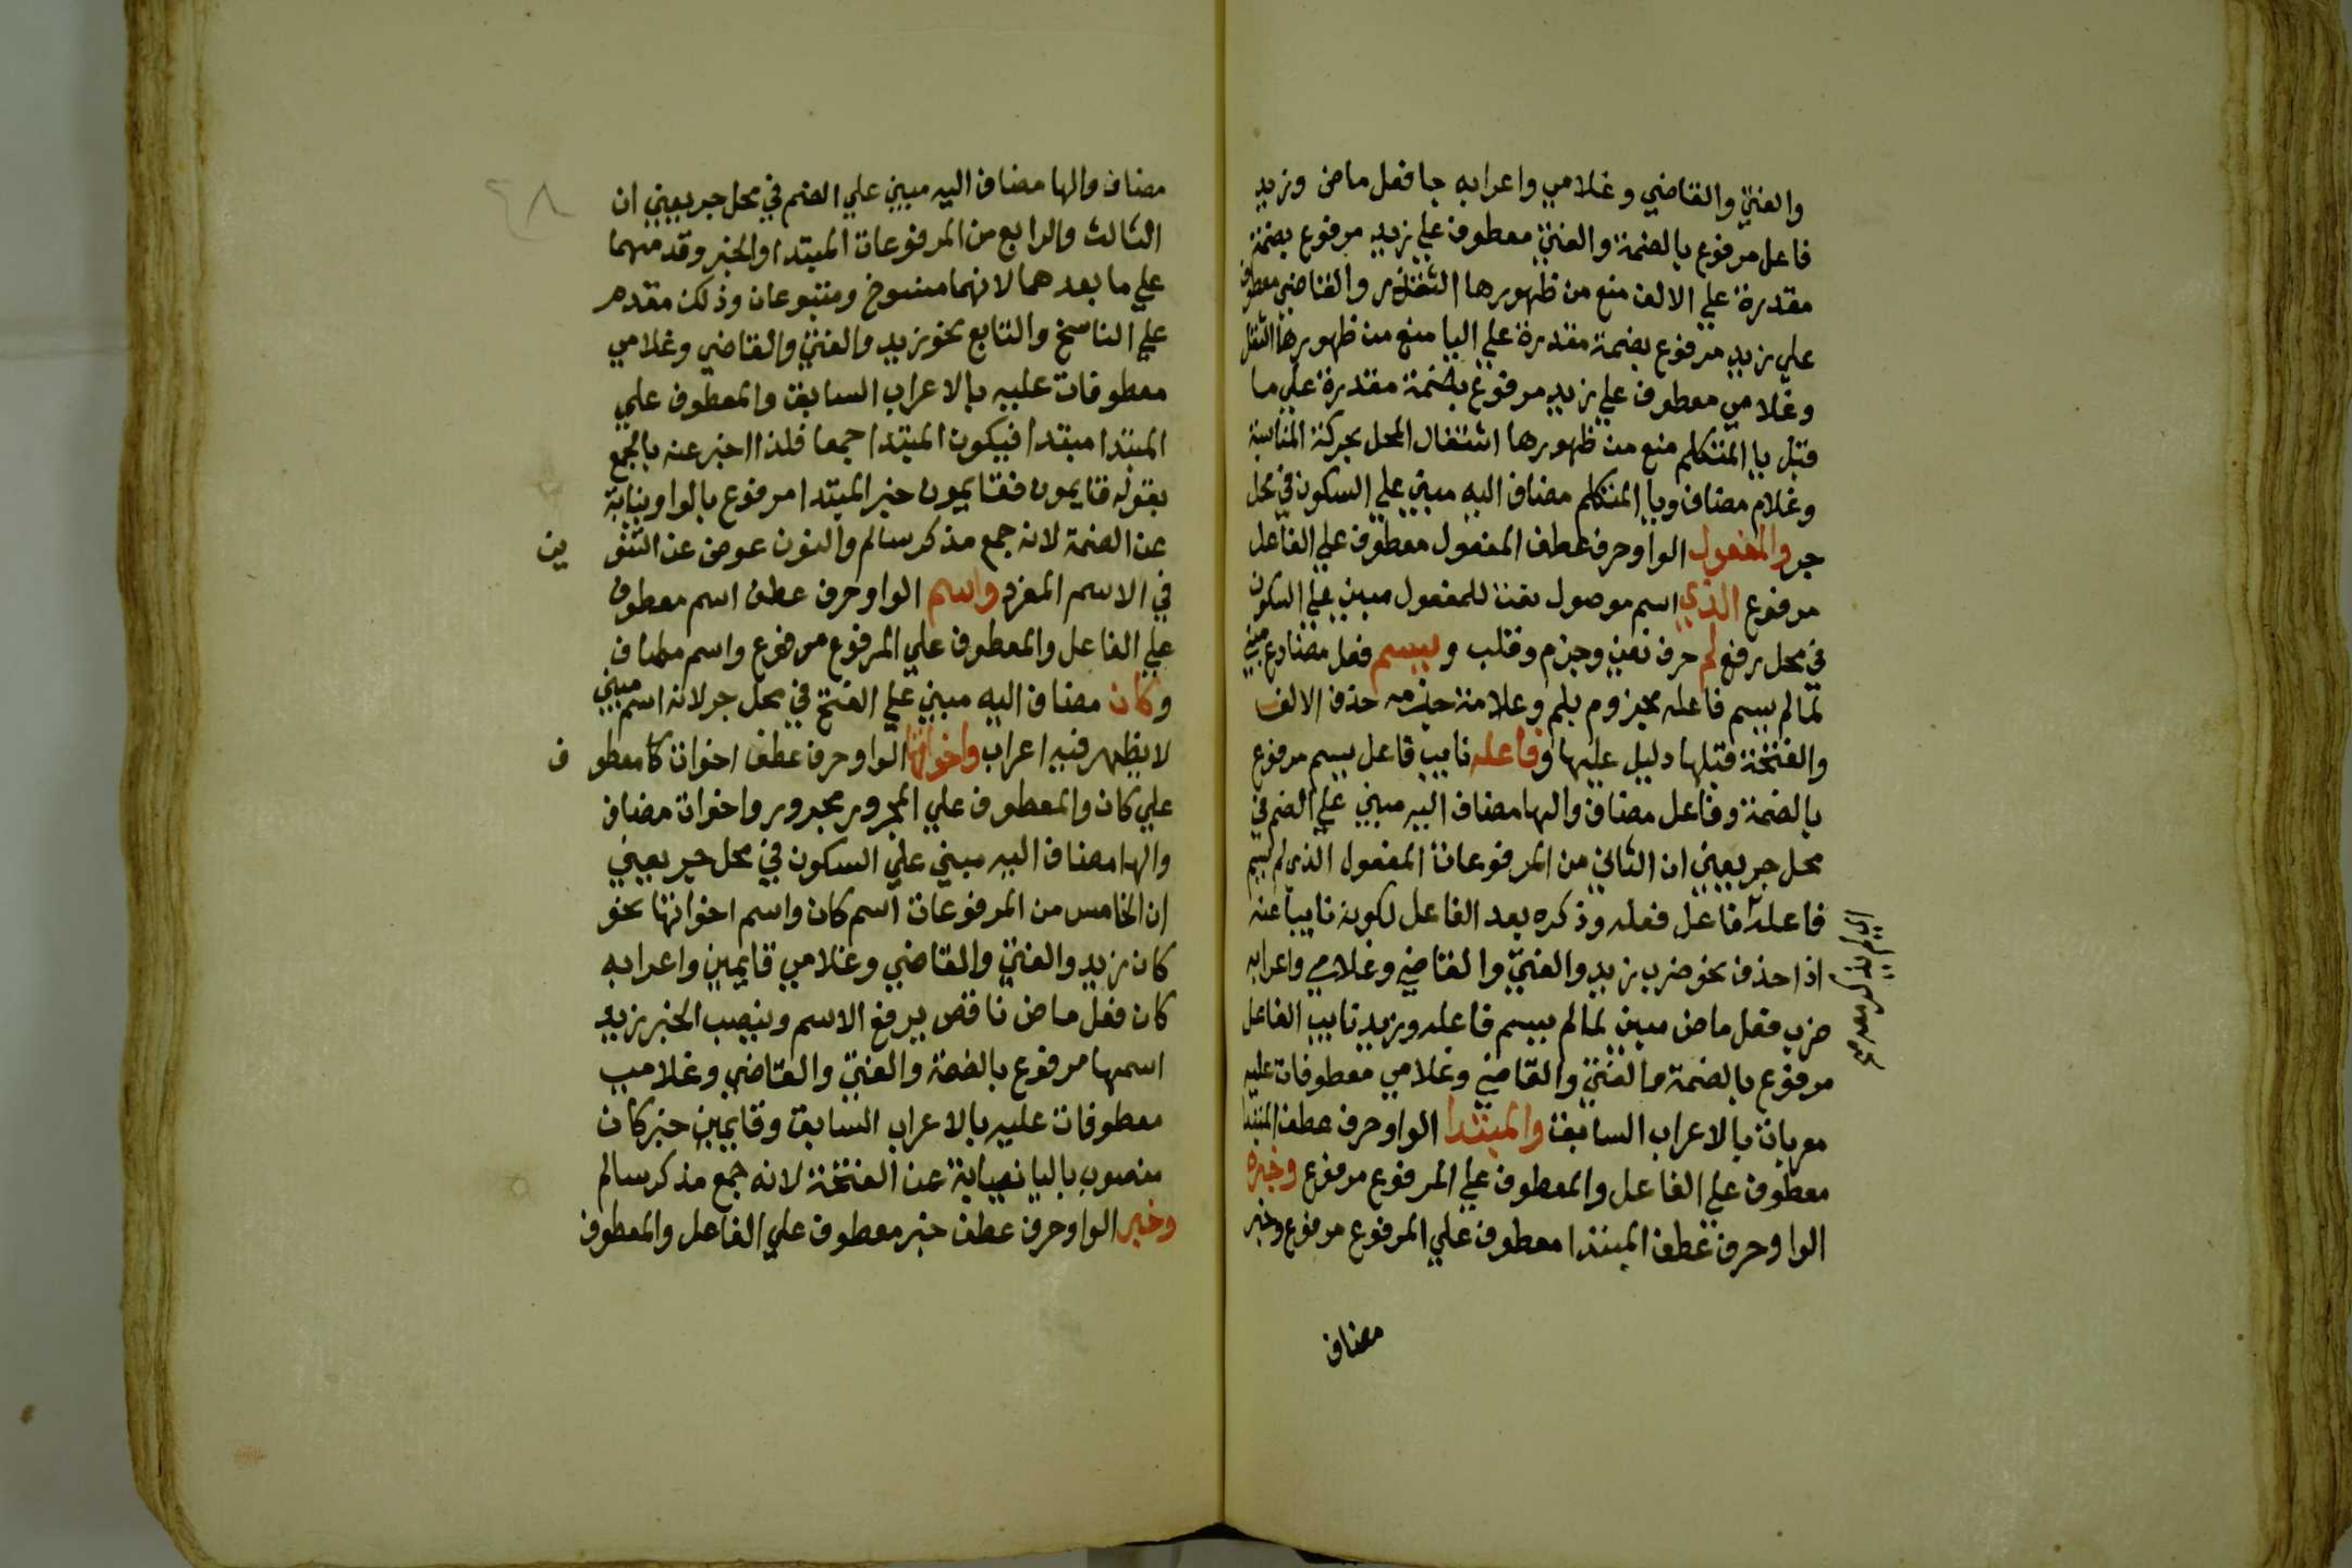 والفتي والقاضي وغلامي واعرابه جا فعل ماض وزيد
فاعل مرفوع بالضمة والفتي معطوف علي زيد مرفوع بضمة
مقدرة علي الالف منع من ظهورها التعذر والقاضي معطوف
علي زيد مرفوع بضمة مقدرة علي اليا منع من ظهورها الثقل
وغلامي معطوف علي زيد مرفوع بضمة مقدرة علي ما
قبل يا المتكلم منع من ظهورها اشتغال المحل بحركة المناسبة
وغلام مضاف ويا المتكلم مضاف اليه مبني علي السكون في محل
جر والمفعول الواو حرف عطف المفعول معطوف علي الفاعل
مرفوع الذي اسم موصول نعت للمفعول مبني علي السكون
في محل رفع لم حرف نفي وجزم وقلب ويسم فعل مضارع مبني
لما لم يسم فاعله مجزوم بلم وعلامة جزمه حذف الالف
والفتحة قبلها دليل عليها وفاعله نايب فاعل يسم مرفوع
بالضمة وفاعل مضاف والها مضاف اليه مبني علي الضم في
محل جر يعني ان الثاني من المرفوعات المفعول الذي لم يسم
فاعله فاعل فعله وذكره بعد الفاعل لكونه نايبا عنه
اذا حذف نحو ضرب زيد والفتي والقاضي وغلامي واعرابه
ضرب فعل ماض مبني لما لم يسم فاعله وزيد نايب الفاعل
مرفوع بالضمة والفتي والقاضي وغلامي معطوفات عليه
معربات بالاعراب السابق والمبتدا الواو حرف عطف المبتدا
معطوف علي الفاعل والمعطوف علي المرفوع مرفوع وخبره
الواو حرف عطف المبتدا معطوف علي المرفوع مرفوع وخبر
مضاف
مضاف والها مضاف اليه مبني علي الضم في محل جر يعني ان
الثالث والرابع من المرفوعات المبتدا والخبر وقدمهما
علي ما بعدهما لانهما منسوخ ومتبوعان وذلك مقدم
علي الناسخ والتابع نحو زيد والفتي والقاضي وغلامي
معطوفات عليه بالاعراب السابق والمعطوف علي
المبتدا مبتدا فيكون المبتدا جمعا فلذا اخبر عنه بالجمع
بقوله قايمون فقايمون خبر المبتدا مرفوع بالواو نيابة
عن الضمة لانه جمع مذكر سالم والنون عوض عن التنو ين
في الاسم المفرد واسم الواو حرف عطف اسم معطوف
علي الفاعل والمعطوف علي المرفوع مرفوع واسم مضاف
وكان مضاف اليه مبني علي الفتح في محل جر لانه اسم مبني
لا يظهر فيه اعراب واخواتها الواو حرف عطف اخوات كا معطو ف
علي كان والمعطوف علي المجرور مجرور واخوات مضاف
والها مضاف اليه مبني علي السكون في محل جر يعني
ان الخامس من المرفوعات اسم كان واسم اخواتها نحو
كان زيد والفتي والقاضي وغلامي قايمين واعرابه
كان فعل ماض ناقص يرفع الاسم وينصب الخبر زيد
اسمها مرفوع بالضمة والفتي والقاضي وغلامي
معطوفات عليه بالاعراب السابق وقايمين خبر كان
منصوب باليا نيابة عن الفتحة لانه جمع مذكر سالم
وخبر الواو حرف عطف خبر معطوف علي الفاعل والمعطوف